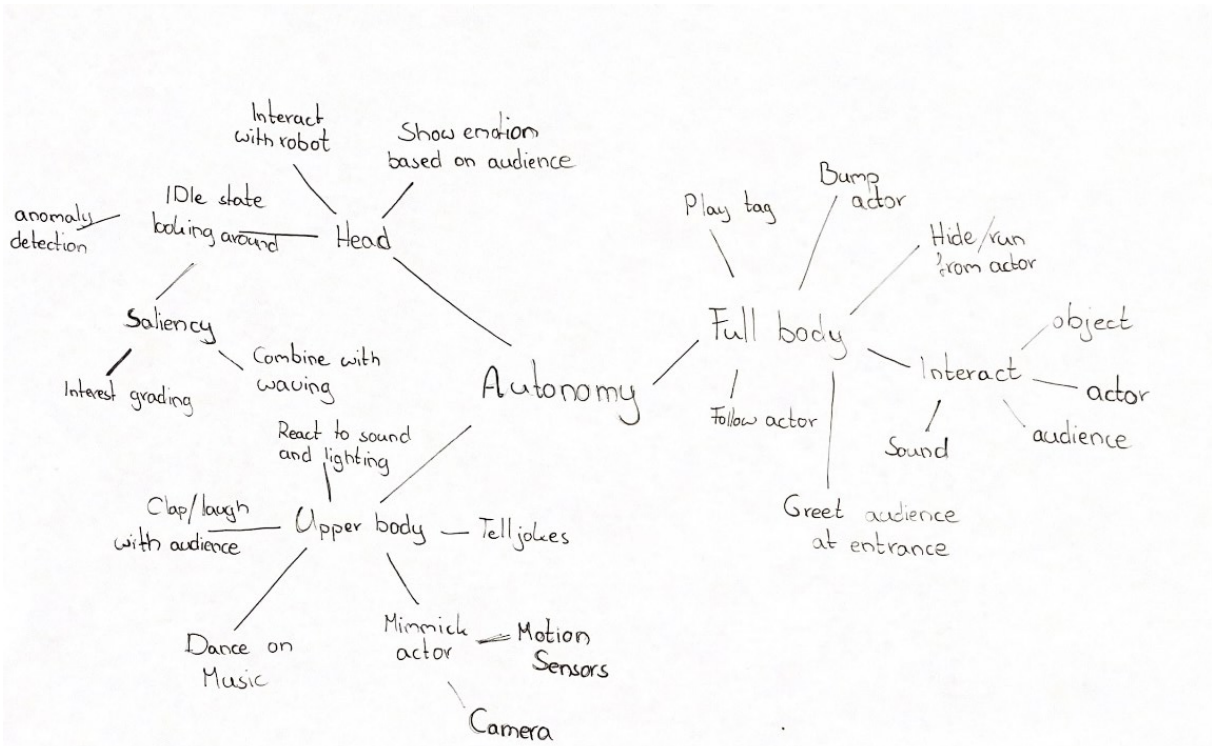 Interact
with robot
Show emotion
based on audience
IDle state
looking around
anomaly
detection
Head
Saliency
Interest grading
Combine with
waving
Autonomy
React to sound
and lighting
Clap/laugh
with audience
Upper body
Tell jokes
Dance on
Music
Mimmick
actor
Motion
Sensors
Camera
Full body
Play tag
Bump
actor
Hide/run
from actor
Interact
object
actor
audience
Sound
Follow actor
Greet audience
at entrance